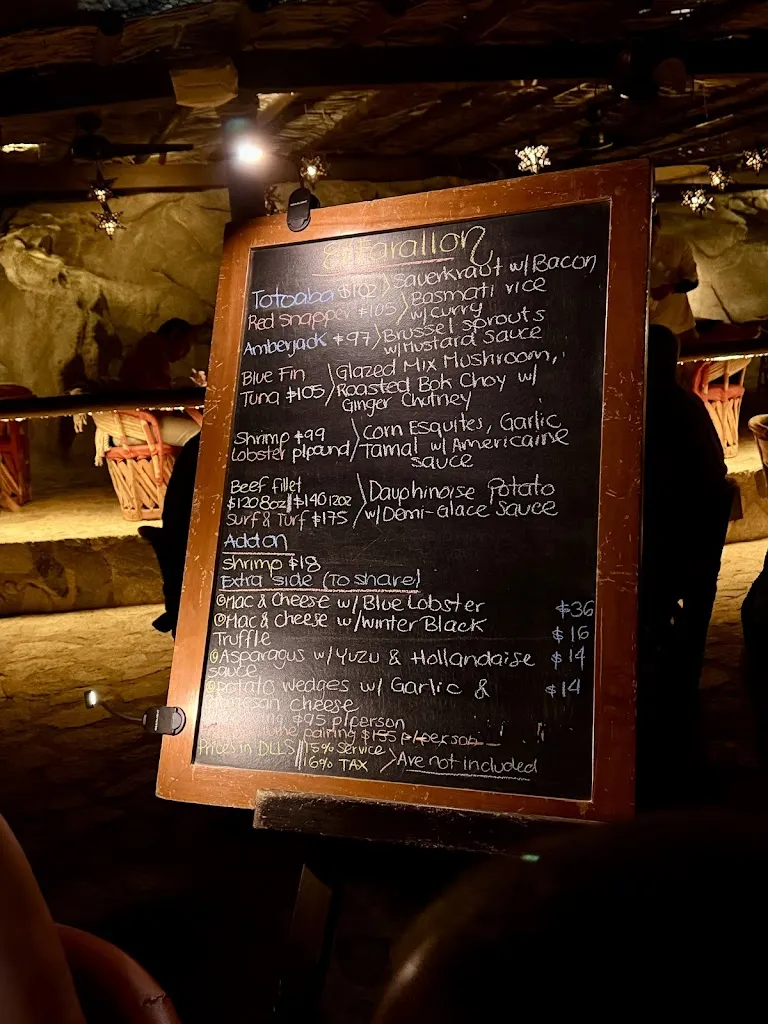 El Farallon
Totoaba $102 > Sauerkraut w/Bacon
Red Snapper $105 > Basmati rice w/curry
Amberjack $97 > Brussel sprouts w/Mustard Sauce
Blue Fin
Tuna $105 / Glazed Mix Mushroom,
Roasted Bok Choy w/
Ginger Chutney
Shrimp $99
Lobster p/pound > Corn Esquites, Garlic
Tamal w/ Americaine
sauce
Beef fillet
$120 8oz | $140 12oz
Surf & Turf $175 > Dauphinoise Potato
w/Demi-Glace Sauce
Add on
shrimp $18
Extra side (to share)
Mac & Cheese w/Blue Lobster $36
Mac & Cheese w/Winter Black $16
Truffle
Asparagus w/Yuzu & Hollandaise $14
sauce
Potato wedges w/ Garlic & $14
cheese
$95 p/person
pairing $155 p/person
Prices in DLLS // 15% Service
16% TAX > Are not included